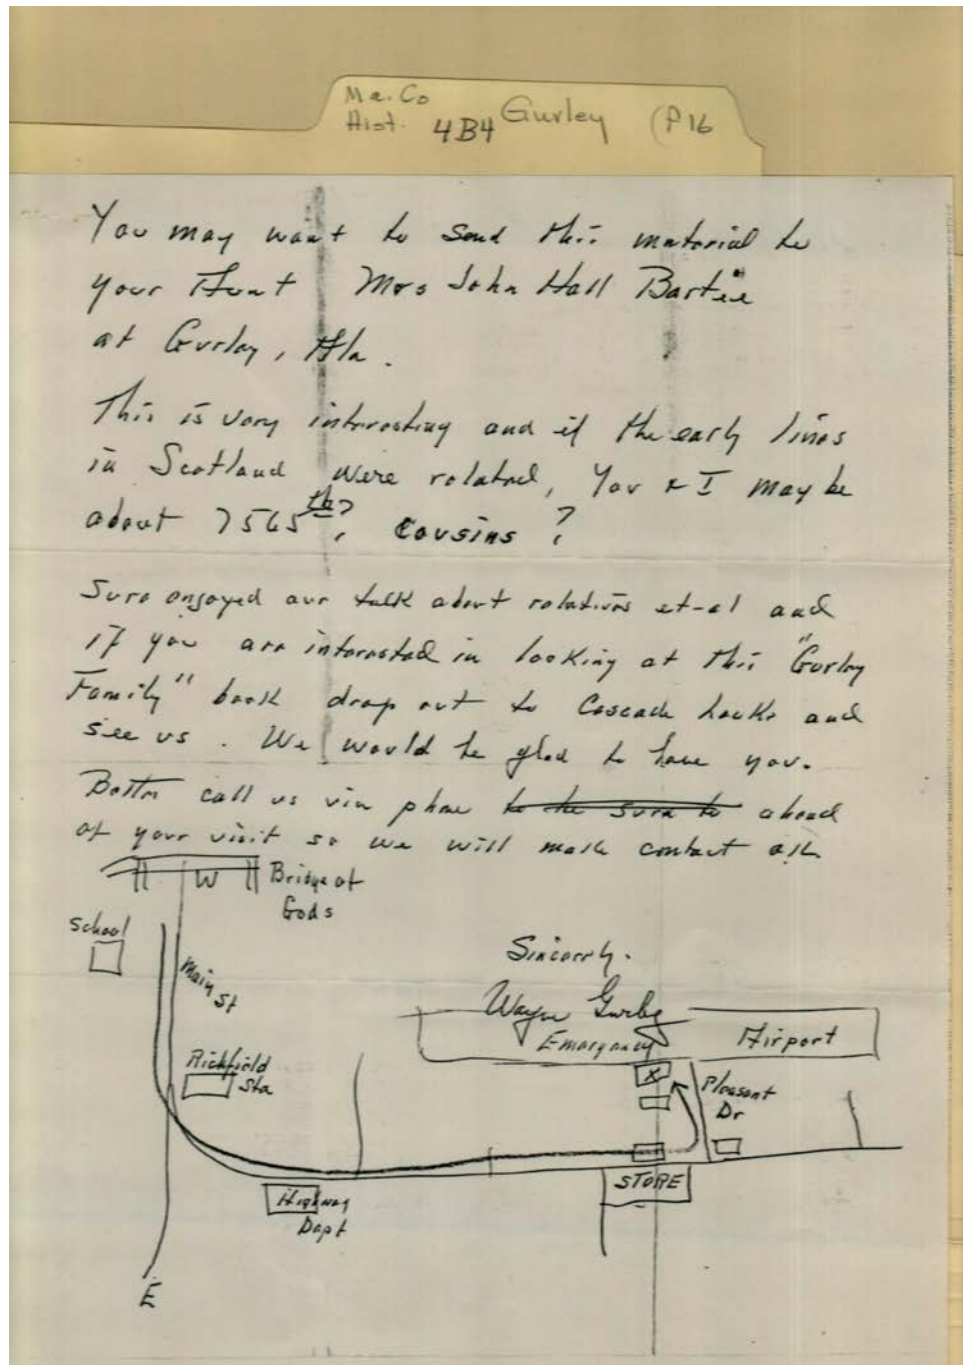 Ma. Co
Hist. 4B4 Gurley (P16
You may want to send this material to
your Aunt Mrs John Hall Bartee
at Gurley, Ala.
This is very interesting and if the early lines
in Scotland were related, You & I may be
about 7565th? cousins?
Sure enjoyed our talk about relatives et-al and
if you are interested in looking at this "Gurley
Family" book drop out to Cascade Locks and
see us. We would be glad to have you.
Better call us via phone to be sure to ahead
of your visit so we will make contact ok.
W Bridge of
Gods
School
Main St
Sincerely.
Wayne Gurley
Emergency Airport
Richfield
Sta
X
Pleasant
Dr
STORE
Highway
Dept
E